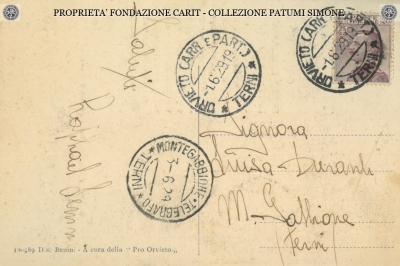 PROPRIETA' FONDAZIONE CARIT - COLLEZIONE PATUMI SIMONE
Saluti
ORVIETO (ARR. E PART.)
1.6.29.19
* TERNI *
ORVIETO (ARR. E PART.)
1.6.29.19
* TERNI *
MONTEGABBIONE-TELEGRAFO
3-6.29
*(TERNI)*
Signora
Luisa Duranti
M. Gabbione
Terni
Dis. Benin. - A cura della "Pro Orvieto„